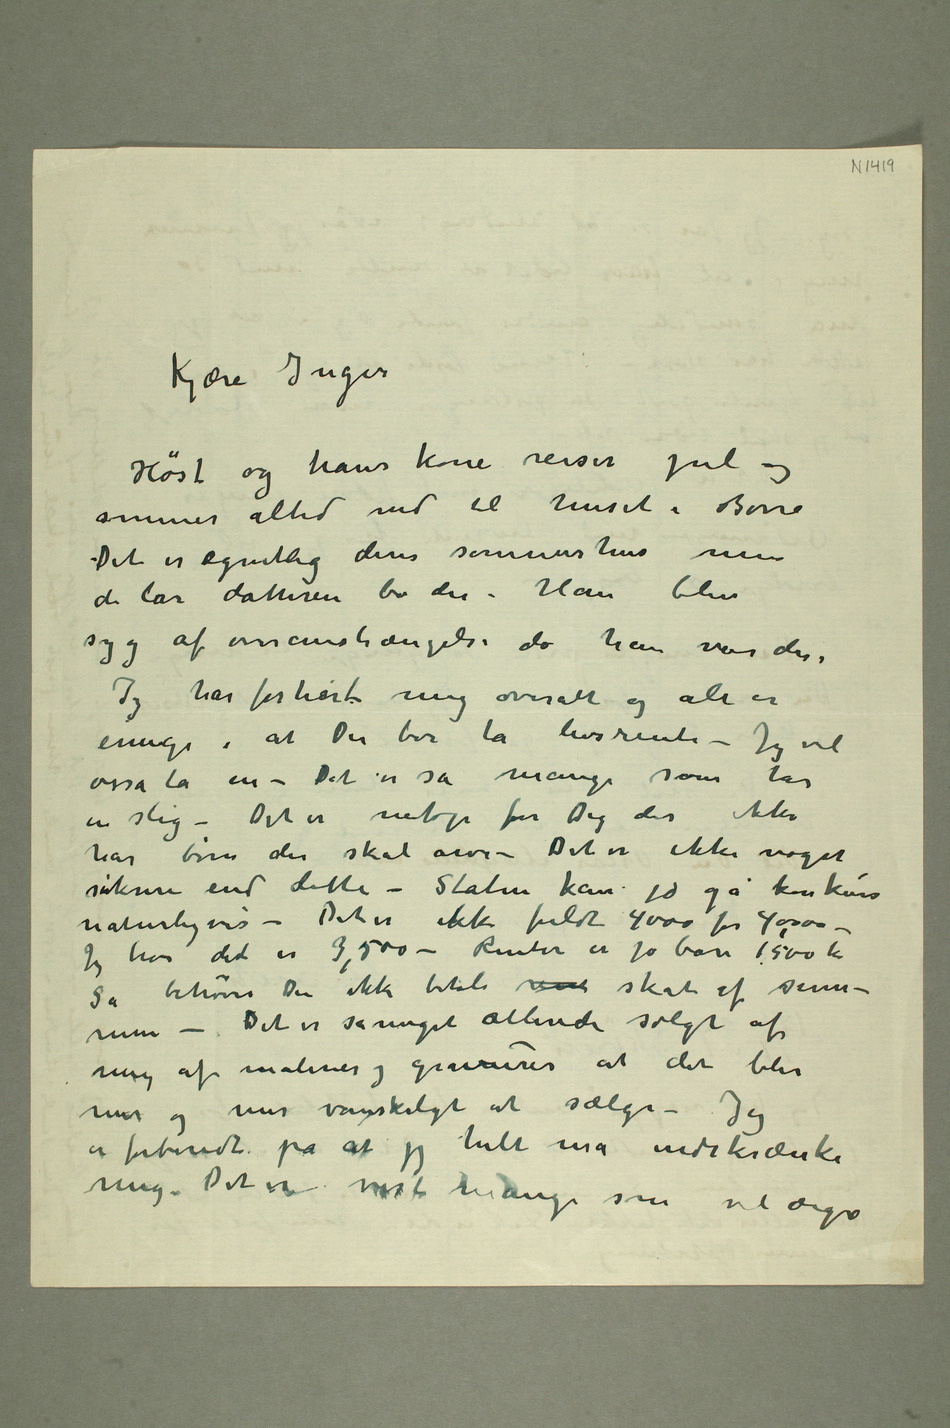 N1419
Kjære Inger
Höst og hans kone reiser jul og
sommer altid ned til huset i Borre
Det er egentlig deres sommerhus men
de lar datteren bo der. Han blev
syg af overanstrængelse da han var der.
Jeg har forhørt mig overalt og alle er
enige i at Du bør ta livsrente – Jeg vil
også ta en – Det er så mange som tar
en slig – Det er netop for Dig der ikke
har børn der skal arve – Det er ikke noget
sikrere end dette – Staten kan jo gå konkurs
naturligvis – Det er ikke fuldt 4000 for 40,000 –
Jeg tror det er 3,500 – Renter er jo bare 1.500 k
Så behøver Du ikke betale skat af sum-
men – Det er så meget allerede solgt af
mig af malerier og gravurer at det blir
mer og mer vanskeligt at sælge – Jeg
er forberedt på at jeg helt må indskrænke
mig. Det er vist mange som vil ærgre